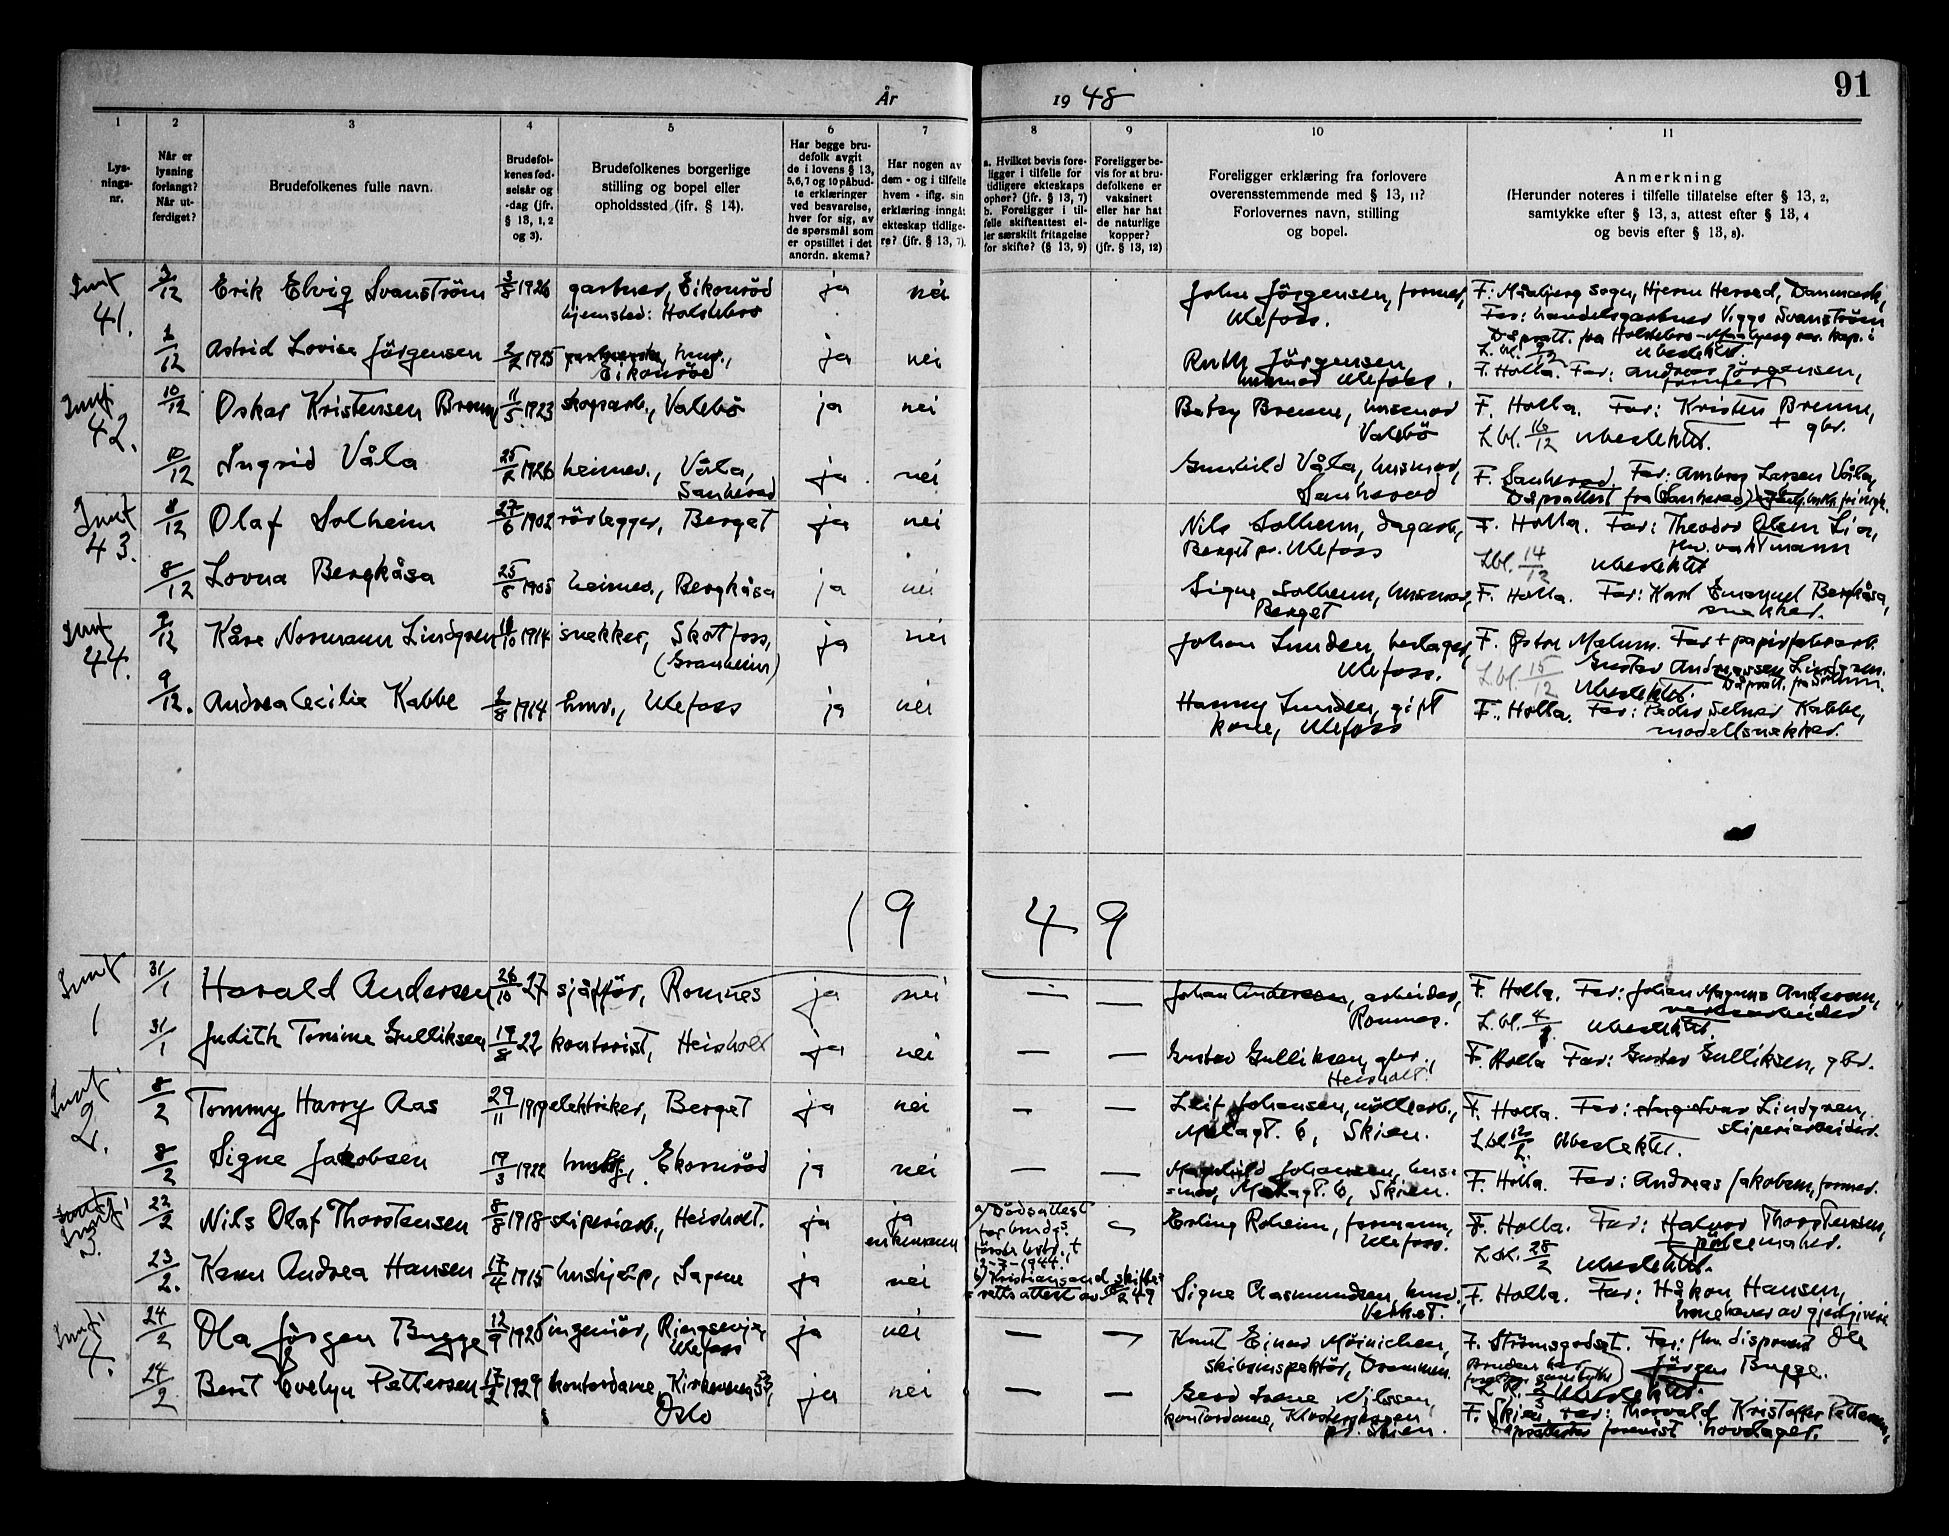 År 1948
91
1
2
3
4
5
6
7
8
9
10
11
Lys-
nings-
nr.
Når er
lysning
forlangt?
Når ut-
ferdiget?
Brudefolkenes fulle navn.
Brudefol-
kenes fød-
selsår og
-dag (jfr.
§ 13, 1, 2
og 3).
Brudefolkenes borgerlige
stilling og bopel eller
opholdssted (ifr. § 14).
Har begge bru-
defolk avgit
de i lovens § 13,
5,6,7 og 10 påbud-
te erklæringer
ved besvarelse,
hver for sig, av
de spørsmål som
er opstillet i det
anordn. skema?
Har nogen av
dem - og i tilfelle
hvem - iflg. sin
erklæring inngåt
ekteskap tidlige-
re? (jfr. § 13, 7).
a. Hvilket bevis fore-
ligger i tilfelle for
tidligere ekteskaps
ophør? (jfr. § 13, 7)
b. Foreligger i til-
felle skifteattest el-
ler særskilt fritagelse
for skifte? (§ 13, 9)
Foreligger be-
vis for at bru-
defolkene er
vaksinert
eller har hat
de naturlige
kopper?
(jfr. § 13, 12)
Foreligger erklæring fra forlovere
overensstemmende med § 13, 11?
Forlovernes navn, stilling
og bopel.
Anmerkning
(Herunder noteres i tilfelle tillatelse efter § 13, 2,
samtykke efter § 13, 3, attest efter § 13, 4
og bevis efter § 13, 8).
41. 3/12 Erik Elvig Svanström 3/8 1926 gartner, Eikonröd ja nei John Jörgensen, former, F: Måbjerg sogn, Hjerm Herred, Danmark,
hjemsted: Holstebro Ulefoss. Far: handelsgartner Viggo Svanström
Dåpsatt. fra Holstebro-Måbjerg
L. bl. Ubeslektet.
2/12 Astrid Lovise Jörgensen 2/2 1925 hmv., Eikonröd ja nei Ruth Jörgensen husmor Ulefoss. F. Holla. Far: Andreas Jörgensen, former
42. 10/12 Oskar Kristensen Brenne 11/5 1923 skogsarb., Valebö ja nei Betzy Brenne, husmor Valebö F. Holla. Far: Kristen Brenne, + gbr.
L. bl. 16/12 Ubeslektet.
10/12 Ingrid Våla 25/2 1926 heimev., Våla, Sauherad ja nei Gunhild Våla, husmor, Sauherad F. Sauherad. Far: Larsen Våla,
Dåpsattest fra (Sauherad)
43. 8/12 Olaf Solheim 27/6 1902 rörlegger, Berget ja nei Nils Solheim, dagarb., F. Holla. Far: Theodor Olsen Lia,
Berget pr. Ulefoss fhv. vaktmann
L.bl. 14/12 Ubeslektet
8/12 Lovna Bergkåsa 25/8 1905 heimev., Bergkåsa ja nei Signe Solheim, husmor, Berget F. Holla. Far: Karl Emanuel Bergkåsa, snekker.
44. 9/12 Kåre Normann Lindgren 1914 snekker, Skotfoss, ja nei Johan Lunden, F. Østre Melum. Far + papirfabrarb.
(Granheim) Ulefoss. Gustav Andreassen Lindgren.
L.bl. 15/12 Ubeslektet. Dåpsatt. fra Solum.
9/12. Andrea Cecilie Kabbe 2/8 1914 hmv., Ulefoss ja nei Hanny Lunden, gift kone, Ulefoss F. Holla. Far: Peder Selmer Kabbe, modellsnekker.
1949
1 31/1 Harald Andersen 26/10 27 sjåfför, Romnes ja nei — — Johan Andersen, arbeider, Romnes. F. Holla. Far: Johan Magnus Andersen, verksarbeider
L. bl. Ubeslektet.
31/1 Judith Tomine Gulliksen 19/8 22 kontorist, Heisholt ja nei — — Gustav Gulliksen, gbr., Heisholt. F. Holla Far: Gustav Gulliksen, gbr.
2. 8/2 Tommy Harry Aas 29/11 1919 elektriker, Berget ja nei — — Leif Johansen, F. Holla. Far: Lindgren, sliperiarbeider.
6, Skien. L.bl. 12/2. Ubeslektet.
8/2 Signe Jakobsen 19/3 1922 hushj., Ekornröd ja nei — — Magnhild Johansen, hus-
mor, 6, Skien. F. Holla. Far: Andreas Jakobsen, former.
3. 22/2 Nils Olaf Thorstensen 8/8 1918 sliperiarb., Heisholt. ja ja enkemann a) Dödsattest for brudgs förste hstr., + 2-3-1944. Erling Roheim, formann, Ulefoss. F. Holla. Far: Halvor Thorstensen,
L.bl. 28/2 Ubeslektet.
23/2. Karen Andrea Hansen 17/4 1915 hushjelp, Sagene ja nei b) Kristiansand skifte-
retts attest av Signe Aasmundsen, hmv., Verket. F. Holla. Far: Håkon Hansen,
4. 24/2 Ola Jörgen Bugge 12/9 1920 ingeniör, Ringsevja, Ulefoss ja nei — — Knut Einar Mørnichen, skibsinspektör, Drammen. F. Strömsgodset. Far: fhv. disponent Ole Jörgen Bugge.
Ubeslektet.
24/2 Berit Evelyn Pettersen 17/2 1929 kontordame, Kirkeveien 53, Oslo ja nei — — Gerd Irene Nilssen, kontordame, Klosterskogen pr. Skien. F. Skien, Far: Thorvald Kristoffer Pettersen,